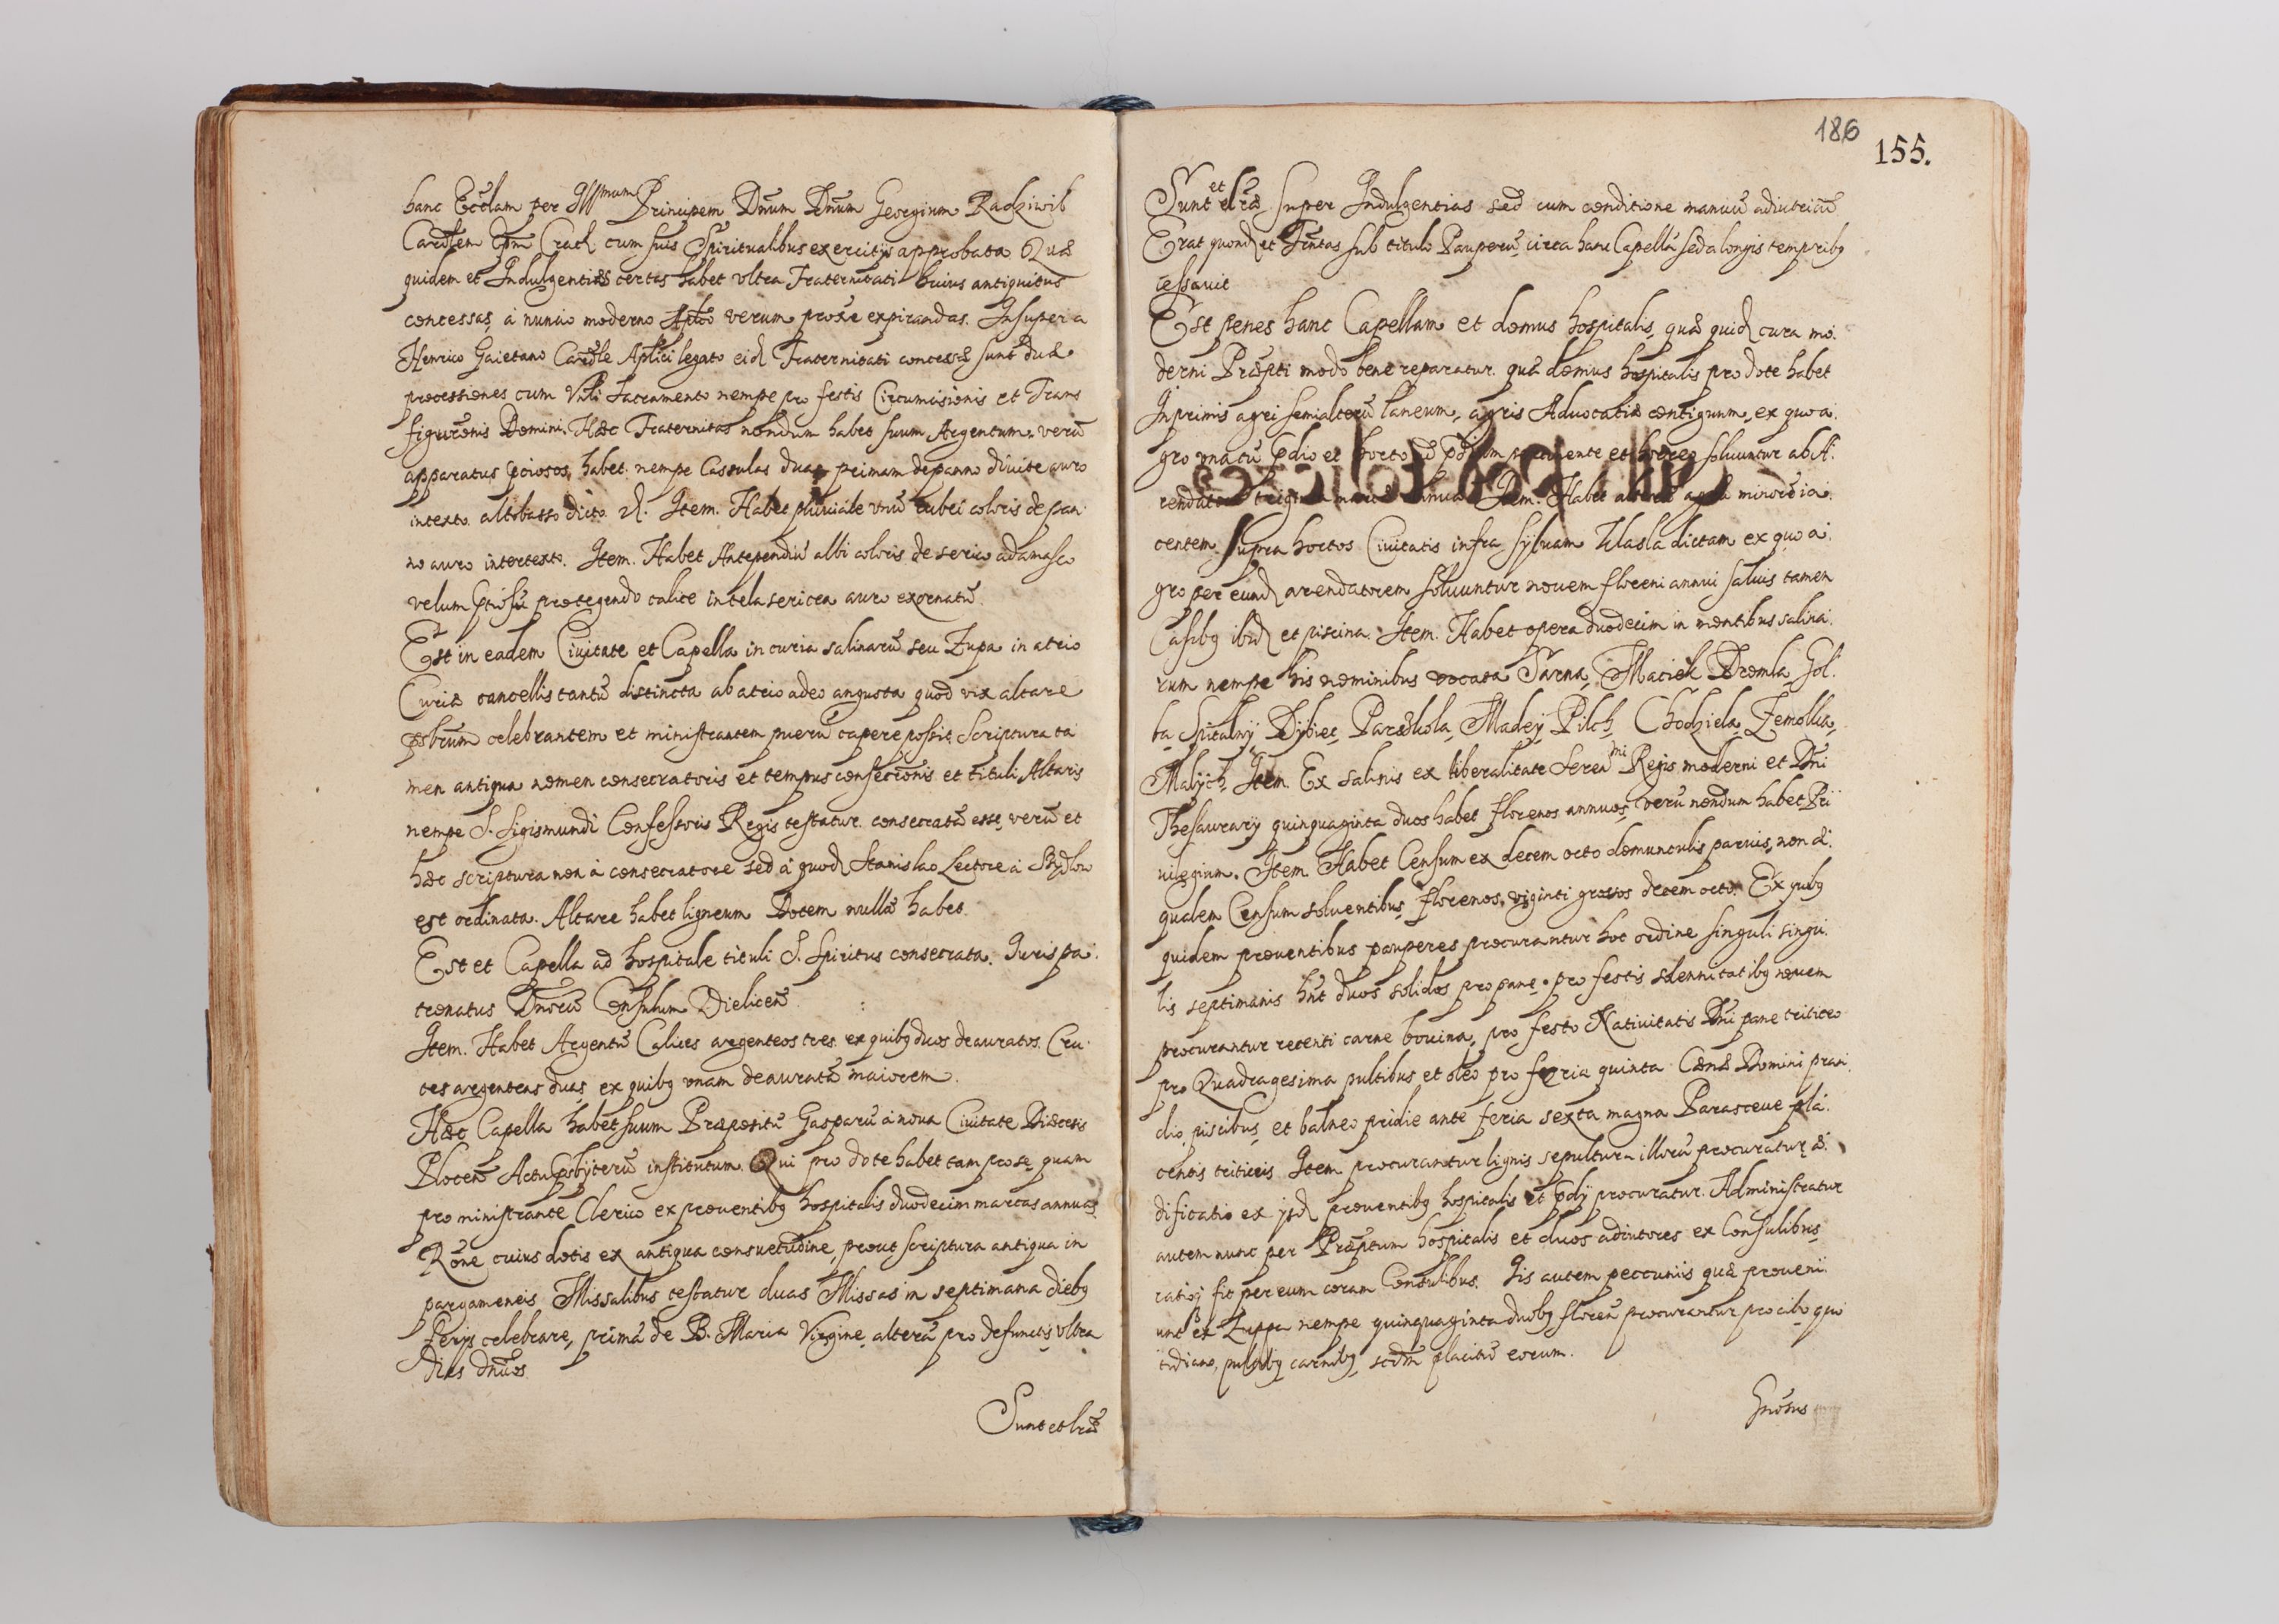 hanc Ecclam per Illmum Principem Dnum Dnum Georgium Radziwił
Cardlem Epm Crac. cum suis Spiritualibus exercitijs approbata. Quæ
quidem et Indulgentias certas habet vltra Fraternitati huius antiquitus
concessas, a nuncio moderno Aplico verum proxe expirandas. Insuper a
Henrico Gaietano Cardle Aplici legato eid Fraternitati concessæ sunt duæ
processiones cum Vnbli Sacramento nempe pro festis Circumcisionis et Trans
figuronis Domini. Hæc Fraternitas nondum habet suum Argentum, verũ
apparatus pciosos, habet nempe Cassulas duas primam de panno divite auro
intexto altobasso dicto. Item. Habet pluviale vnũ rubei coloris de pan
no auro intertexto. Item. Habet Antependiũ albi coloris de serico adamasco
velum pciosũ protegendo calice in tela sericea auro exornatũ.
Est in eadem Ciuitate et Capella in curia salinarũ seu Zupa in atrio
Curiæ cancellis tantũ distincta ab atrio adeo angusta quod vix altare
psbrum celebrantem et ministrantem puerũ capere possit. Scriptura ta
men antiqua nomen consecratoris et tempus consecronis et tituli Altaris
nempe S. Sigismundi Confessoris Regis testatur consecratũ esse, verũ et
hæc scriptura non à consecratore sed à quod Stanislao Lectore à Skydlow
est ordinata. Altare habet ligneum Dotem nullã habet.
Est et Capella ad hospitale tituli S. Spiritus consecrata. Iuris pa
tronatus Dnorũ Consulum Vielicen
Item. Habet Argentũ Calices argenteos tres ex quibq duos deauratos. Cru
ces argenteas duas, ex quibq vnam deauratã maiorem.
Hæc Capella habet suum Præpositũ Gasparũ à noua Ciuitate Diæcesis
Plocen Actu Psbyterũ institutum. Qui pro dote habet tam pro se, quam
pro ministrante Clerico ex prouentibq hospitalis duodecim marcas annuas.
Rone cuius dotis ex antiqua consuetudine, prout scriptura antiqua in
pargameneis Missalibus testatur duas Missas in septimana diebq
ferijs celebrare, primã de B. Maria Virgine, alterã pro defunctis, vltra
dies dnicos.
Sunt et lræ
186
155.
Sunt et lræ super Indulgentias sed cum conditione manuũ adiutriciũ
Erat quond et Frntas sub titulo Pauperũ, circa hanc Capellã sed a longis temporibq
cessauit
Est penes hanc Capellam et domus hospitalis, quæ quid cura mo
derni Præpti modo bene reparatur. quæ domus hospitalis pro dote habet
Inprimis agri semialterũ laneum, agris Aduocatiæ contiguum, ex quo a
gro vnacũ pdio et horto ad pdium pertinente et horreo soluuntur ab A
rendatore triginta marcæ annuæ. Item. Habet alterũ agrũ minorẽ ia
centem supra hortos Ciuitatis infra syluam Wlasła dictam ex quo a
gro per eund arendatorem soluuntur nouem floreni annui saluis tamen
Casibq ibid et piscina. Item. Habet opera duodecim in montibus salina
rum nempe his nominibus vocata Sarna, Maciek, Dromla, Gol
ba, Spitalny, Dybiec, Parzkola, Madey, Pilch, Chodziela, Zemolka,
Malych. Item. Ex salinis ex liberalitate Seren mi Regis moderni et Dni
Thesaurarij quinquaginta duos habet florenos annuos, verũ nondum habet Pri
uilegium. Item. Habet Censum ex decem octo domunculis paruis, non æ
qualem Censum soluentibus, florenos, viginti grossos decem octo. Ex quibq
quidem prouentibus pauperes procurantur hoc ordine singuli singu
lis septimanis hnt duos solidos pro pane. pro festis solennitatibq nouem
procurantur recenti carne bouina, pro festo Natiuitatis Dni pane triticeo
pro Quadragesima pultibus et oleo pro feria quinta Cænæ Domini pran
dio, piscibus, et balneo pridie ante feria sexta magna Parasceue pla
centis triticeis Item procurantur lignis sepultura illorũ procuratur, æ
dificatio ex ijsd prouentibq hospitalis et pdij procuratur. Administratur
autem nunc per Præptum hospitalis et duos adiutores ex Consulibus,
ratioq fit per eum coram Consulibus. His autem peccuniis quæ proueni
unt ex Zuppa nempe quinquaginta duobq floren procurantur pro cibo quo
tidiano, pulsibq carnibq, scdm placitũ eorum.